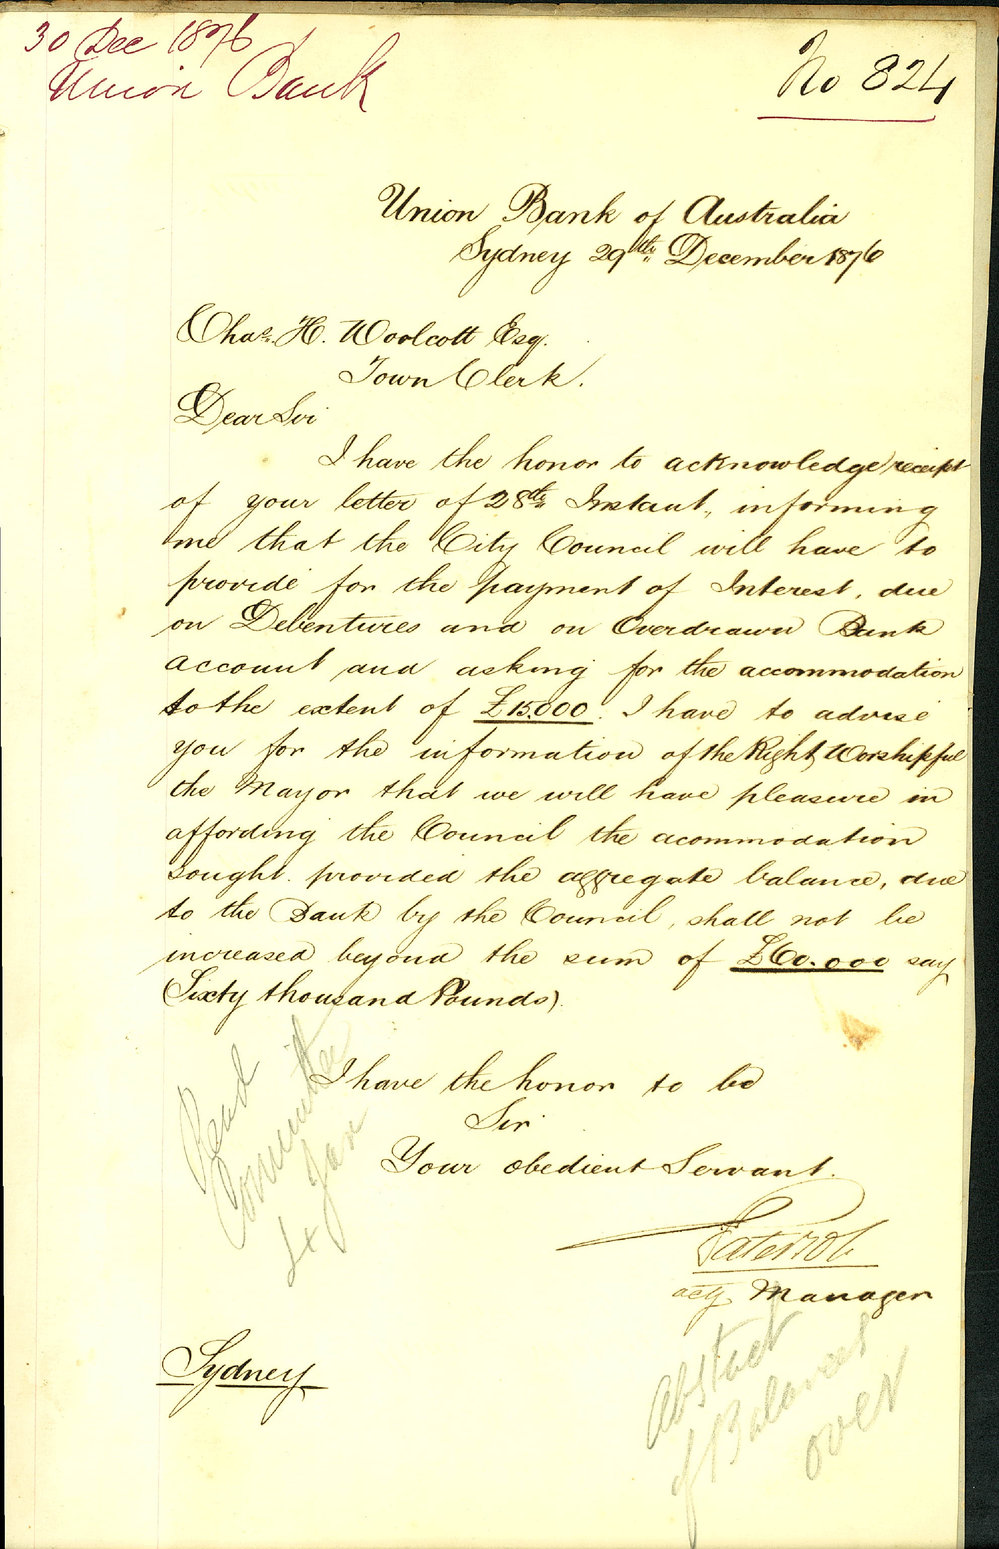 30 Dec 1876
Union Bank
No 824
Union Bank of Australia
Sydney 29th December 1876
Chas. H. Woolcott Esq.
Town Clerk.
Dear Sir
I have the honor to acknowledge receipt
of your letter of 28th Instant, informing
me that the City Council will have to
provide for the payment of Interest, due
on Debentures and on Overdrawn Bank
account and asking for the accommodation
to the extent of £15.000. I have to advise
you for the information of the Right Worshipful
the Mayor that we will have pleasure in
affording the Council the acommodation
sought. provided the aggregate balance, due
to the Bank by the Council, shall not be
increased beyond the sum of £60.000 say
(Sixty thousand Pounds).
I have the honor to be
Sir
Your obedient Servant.
actg Manager
Sydney
Read
Committee
Jan
Abstract
of Balances
over